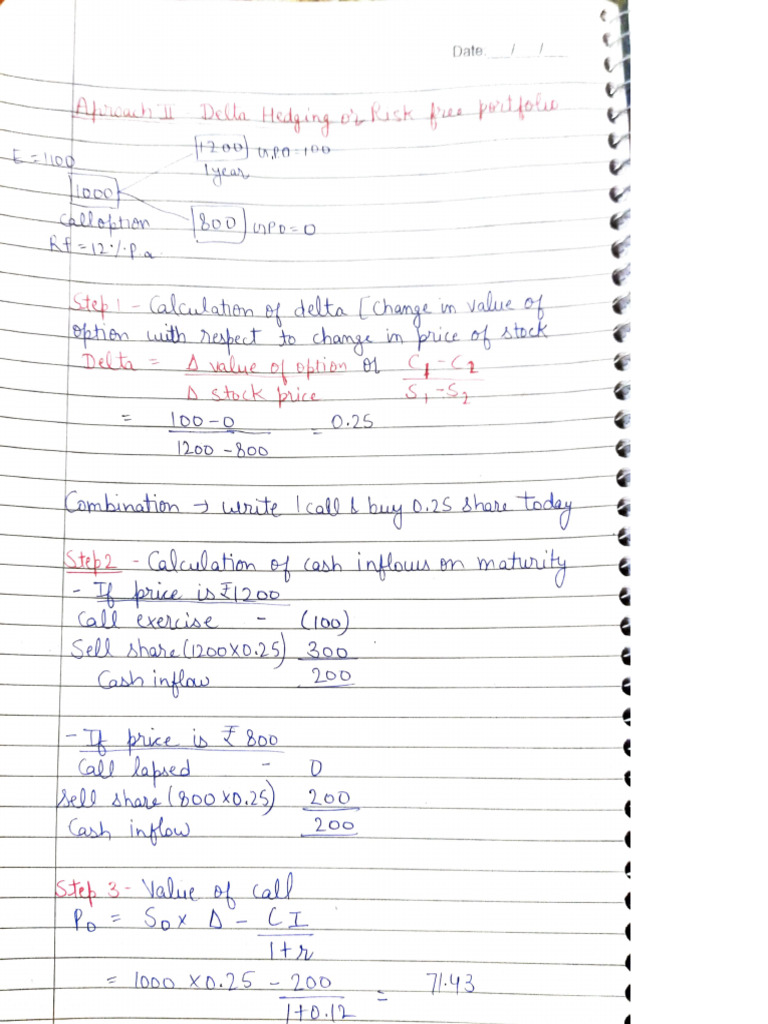 Date. __/__/__
Aproach II Delta Hedging or Risk free portfolio
E = 1100
1200 GPO = 100
1 year
1000
Call option
800 GPO = 0
Rf = 12% P.a
Step 1 - Calculation of delta [Change in value of
option with respect to change in price of stock
Delta = Δ value of option or C1 - C2
Δ stock price S1 - S2
= 100 - 0 = 0.25
1200 - 800
Combination → write 1 call & buy 0.25 share today
Step 2 - Calculation of cash inflows on maturity
- If price is ₹1200
Call exercise - (100)
Sell share (1200 X 0.25) 300
Cash inflow 200
- If price is ₹ 800
Call lapsed - 0
Sell share (800 X 0.25) 200
Cash inflow 200
Step 3 - Value of call
P0 = S0 x Δ - CI
1+r
= 1000 X 0.25 - 200 = 71.43
1+0.12